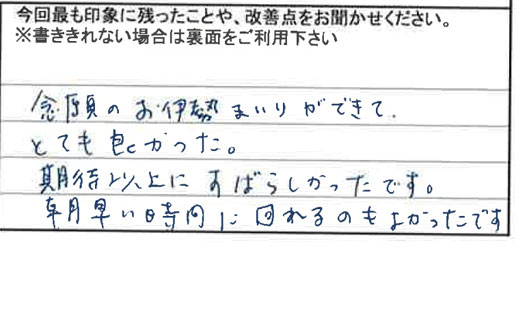 今回最も印象に残ったことや、改善点をお聞かせください。
※書ききれない場合は裏面をご利用下さい
念願のお伊勢まいりができて、
とてもかった。
期待以上にすばらしかったです。
早い時間に回れるのもよかったです